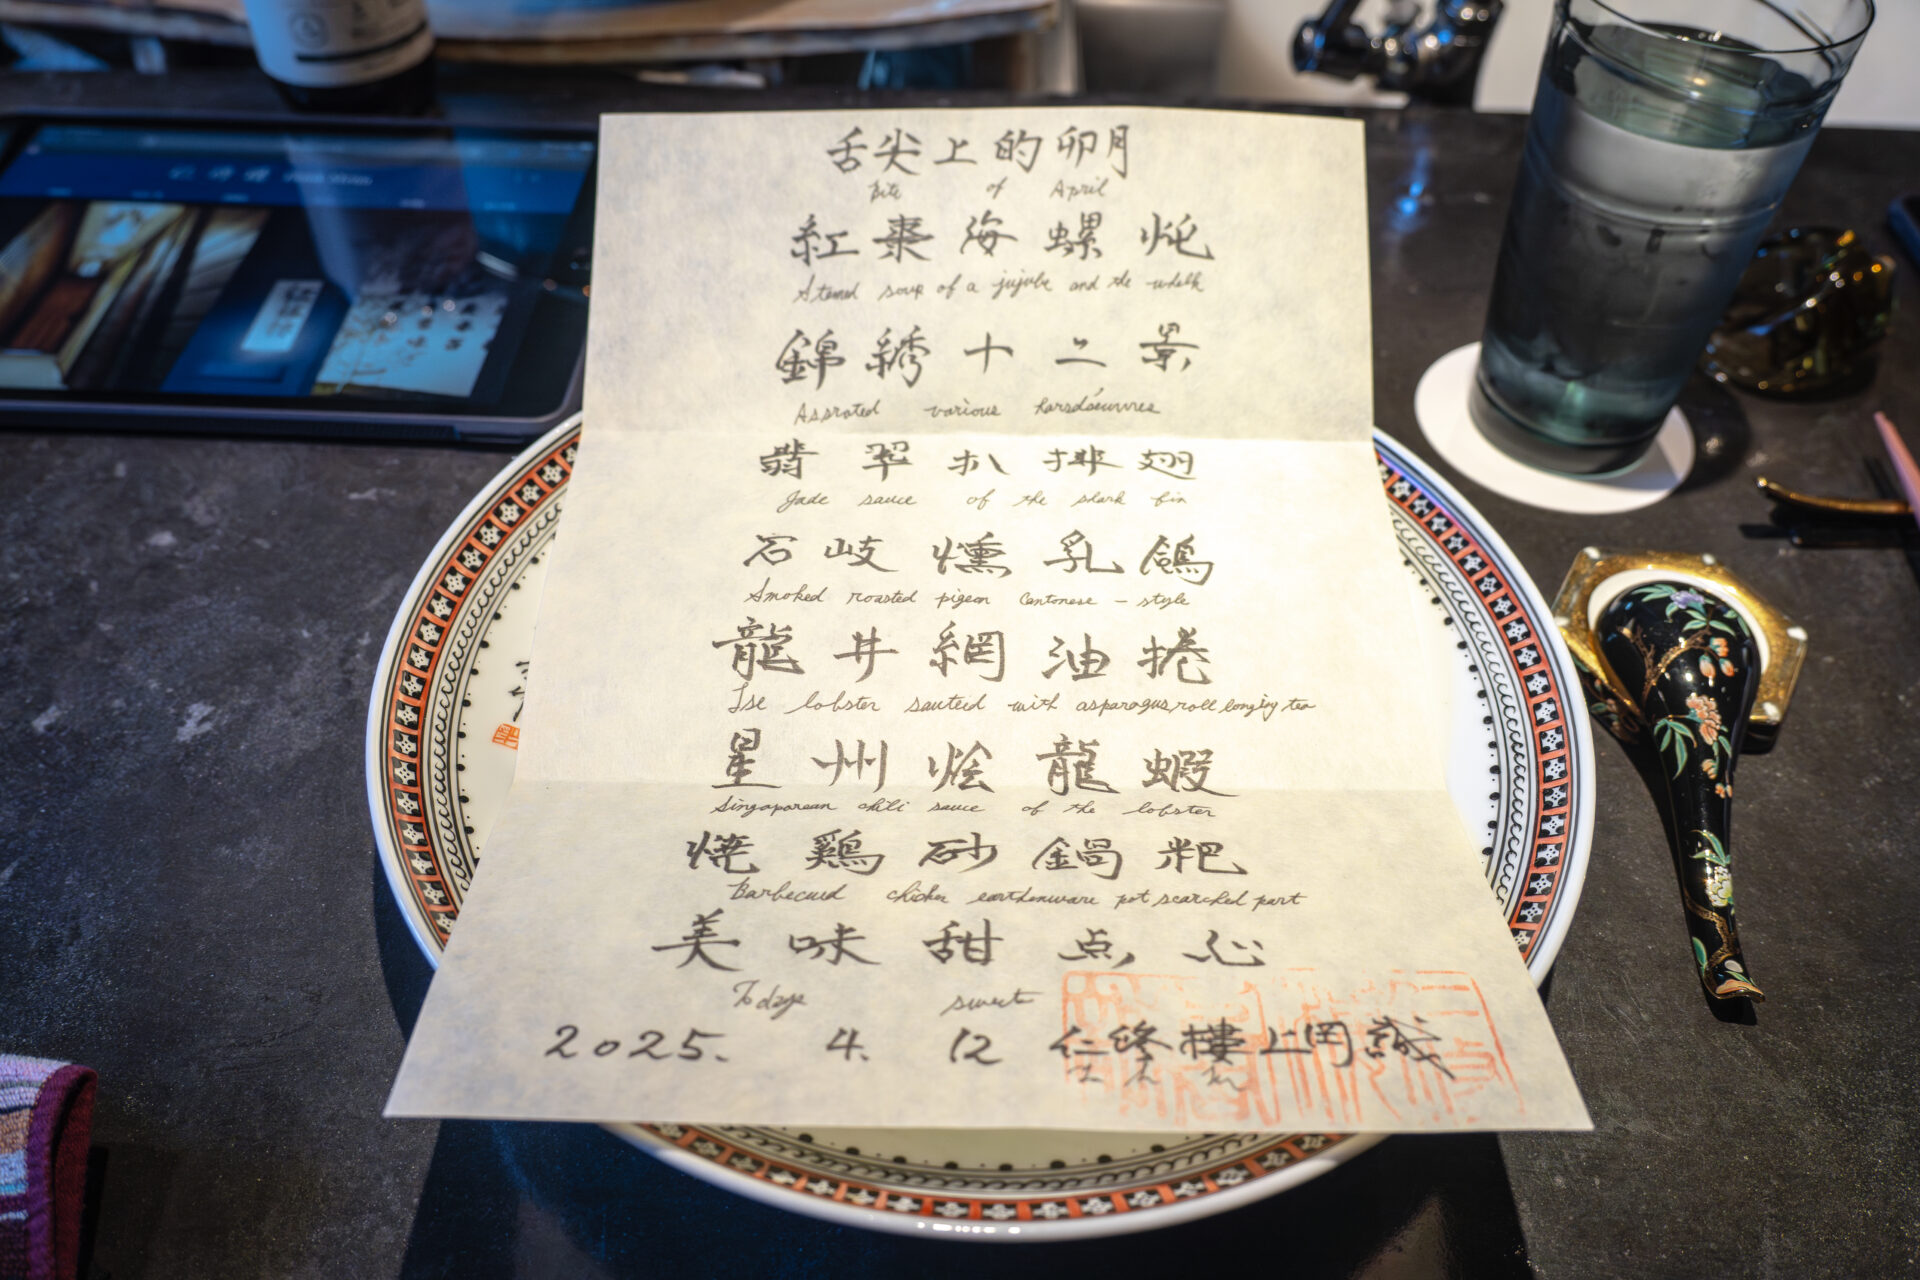 舌尖上的卯月
Bite of April
紅棗海螺炖
Stemed soup of a jujube and the whelk
錦綉十二景
Assroted various horsdóeuvres
翡翠扒排翅
Jade sauce of the shark fin
石岐燻乳鴿
Smoked roasted pigeon Cantonese - style
龍井網油捲
Ise lobster sauteed with asparagus roll longjng tea
星州烩龍蝦
Singaporean chili sauce of the lobster
焼鷄砂鍋粑
Barbecued chicken earthenware pot scorched part
美味甜点心
Todays sweet
2025. 4. 12 仁修樓上岡誠